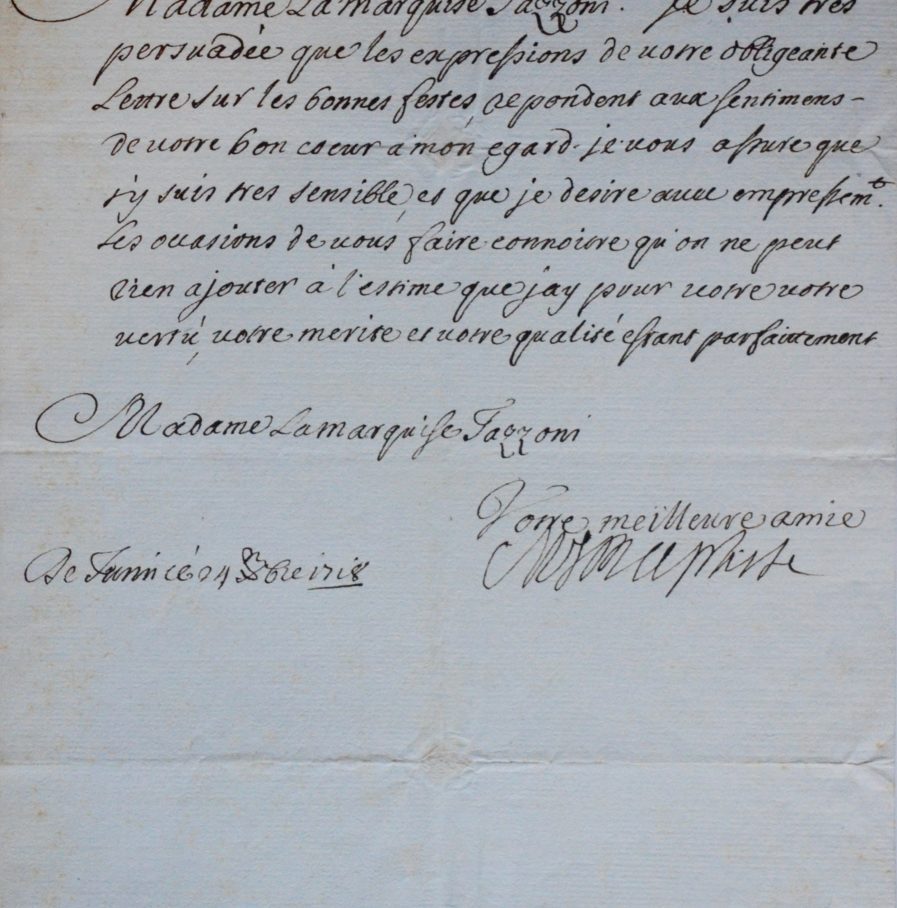 Madame La marquise Fazzoni. Je suis tres
persuadée que les expressions de votre obligeante
Lettre sur les bonnes festes, repondent aux sentimens-
de votre bon coeur à mon egard. je vous assure que
j'y suis tres sensible, et que je desire avec empressem.t
Les ocasions de vous faire connoitre qu'on ne peut
rien ajouter à l'estime que j'ay pour votre votre
vertu, votre merite et votre qualité estant parfaittement
Madame La marquise Fazzoni
Votre meilleure amie
De 24 1718